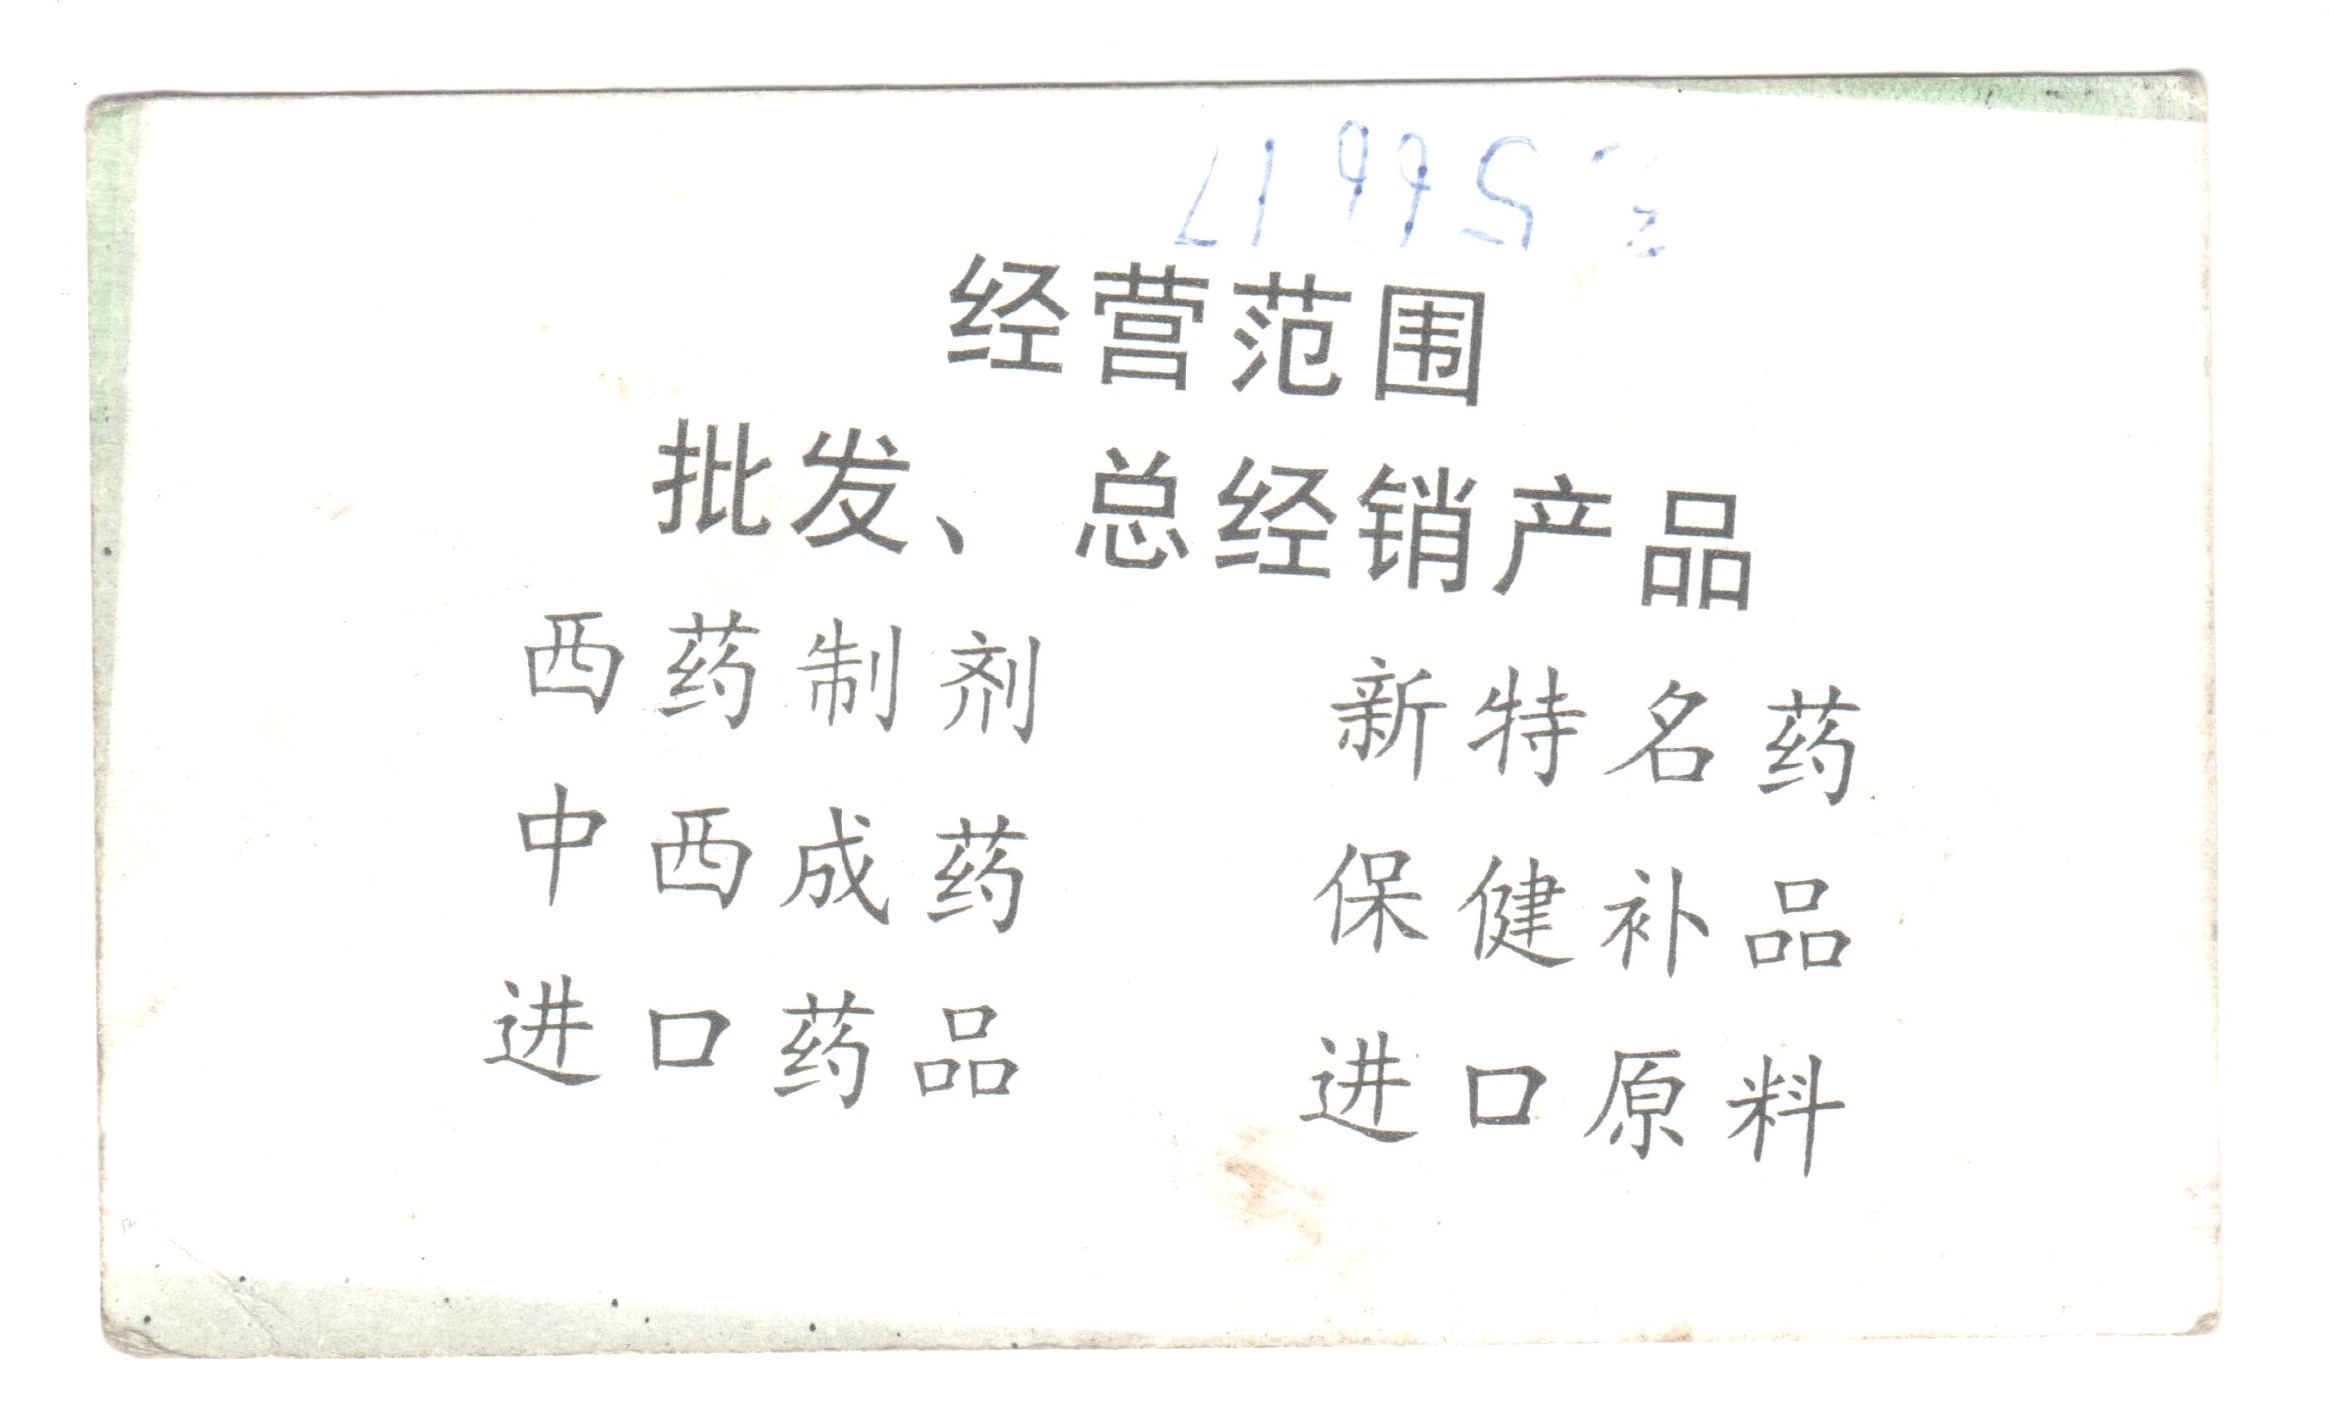 经营范围
批发、总经销产品
西药制剂 新特名药
中西成药 保健补品
进口药品 进口原料